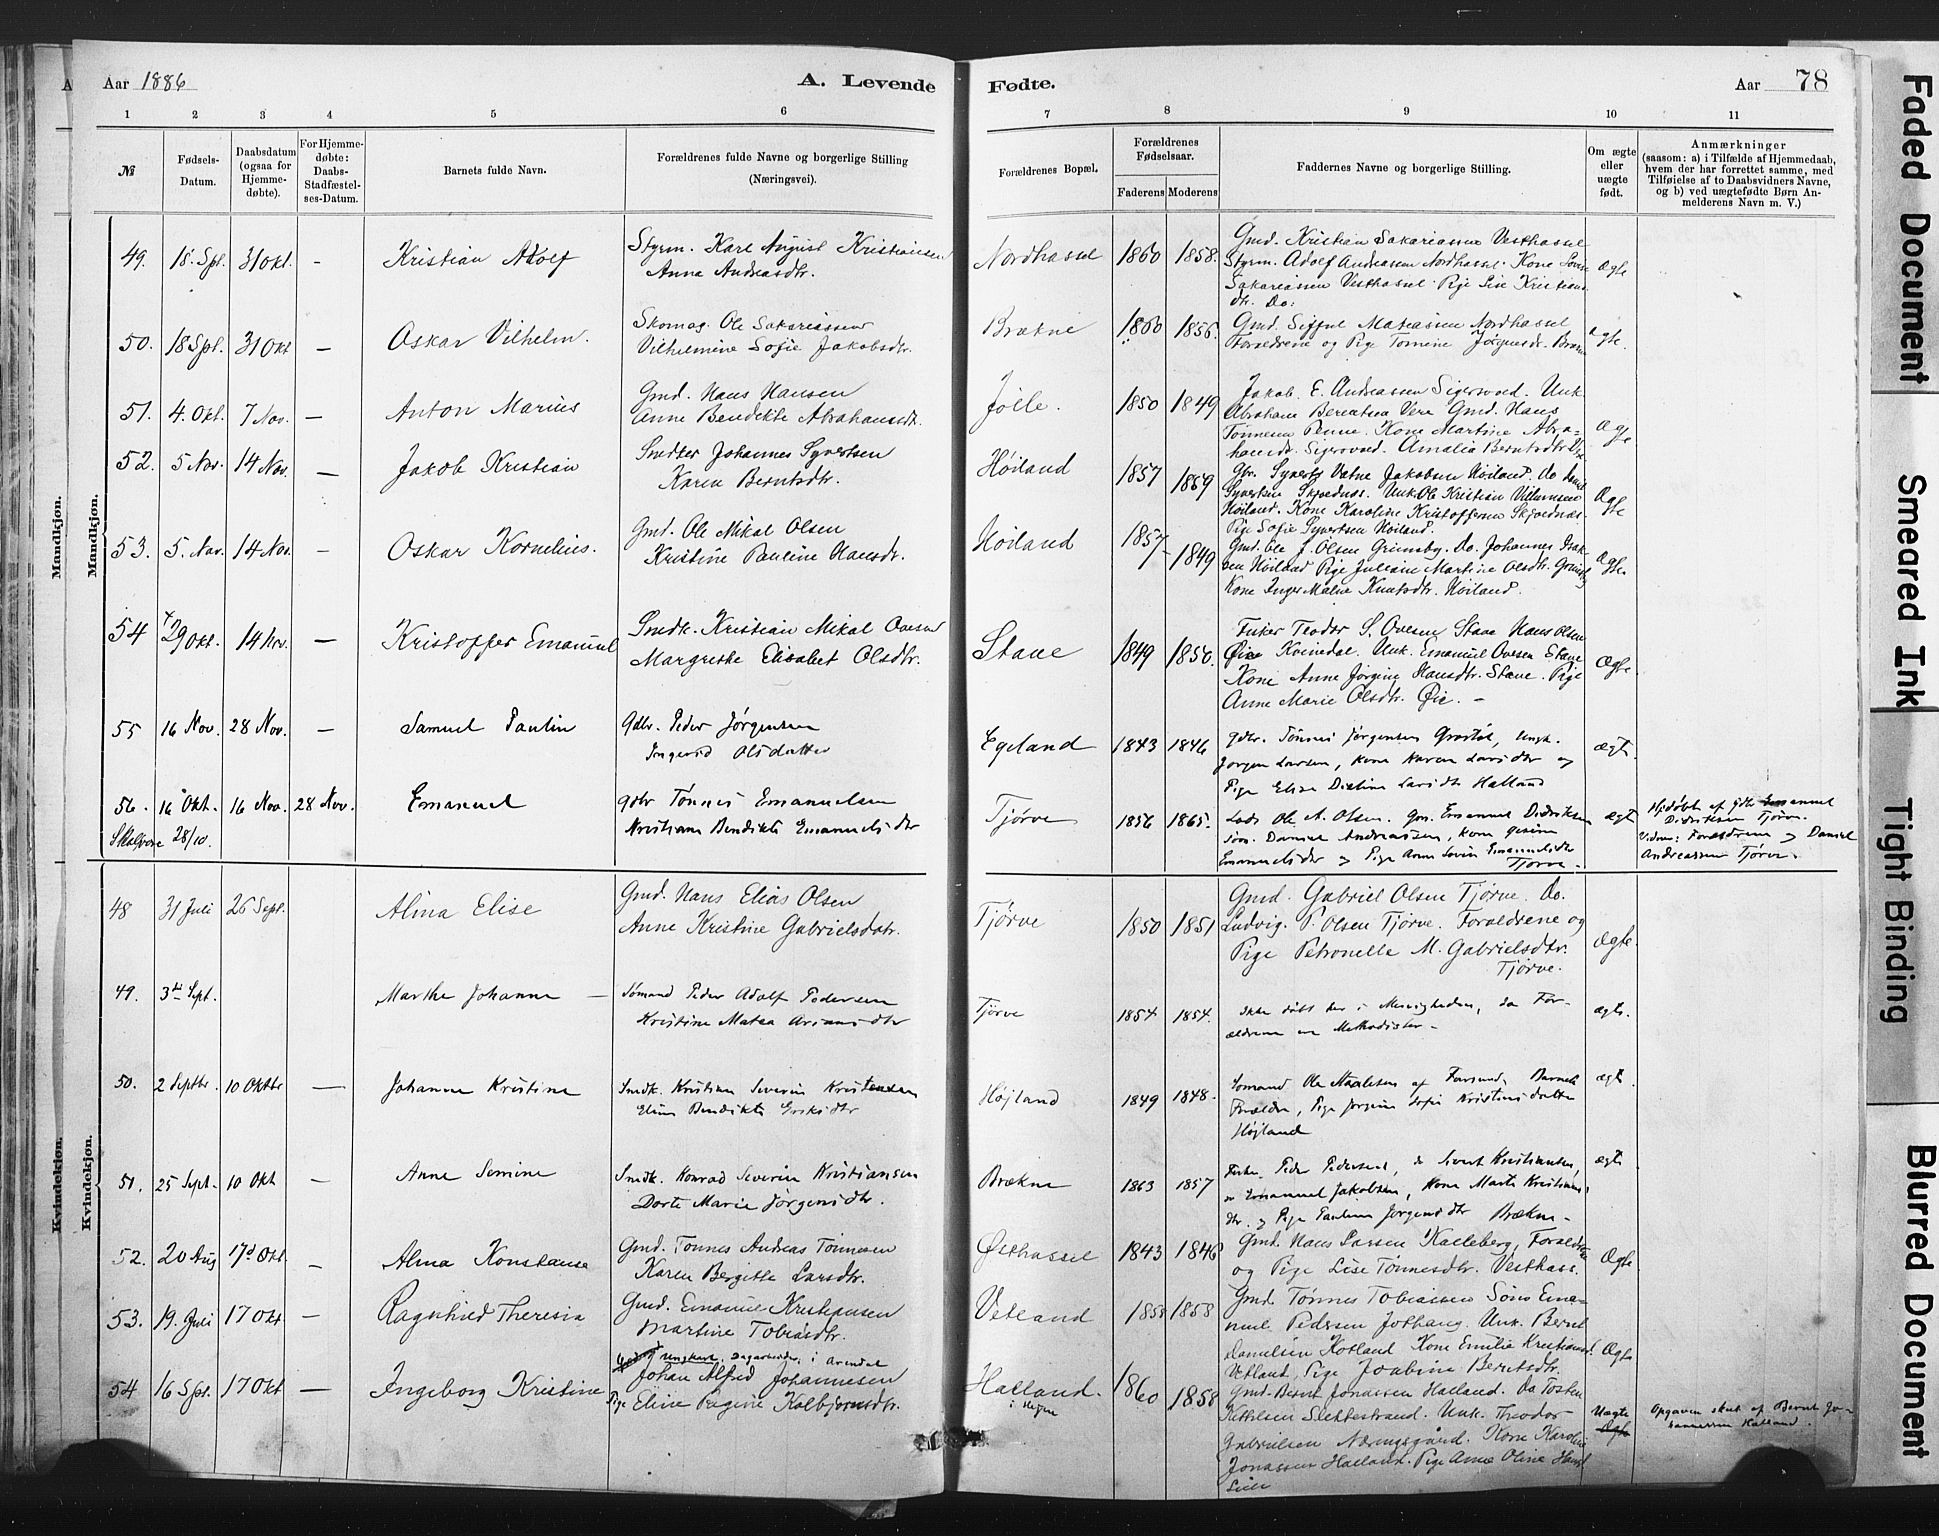 Aar 1886
A. Levende
Fødte.
Aar 78
1 2 3 4 5 6 7 8 9 10 11
№
Fødsels-
Datum.
Daabsdatum
(ogsaa for
Hjemme-
døbte).
For Hjemme-
døbte:
Daabs-
Stadfæstel-
ses-Datum.
Barnets fulde Navn.
Forældrenes fulde Navne og borgerlige Stilling
(Næringsvei).
Forældrenes Bopæl.
Forældrenes
Fødselsaar.
Faderens Moderens
Faddernes Navne og borgerlige Stilling.
Om ægte
eller
uægte
født.
Anmærkninger
(saasom: a) i Tilfælde af Hjemmedaab,
hvem der har forrettet samme, med
Tilføielse af to Daabsvidners Navne,
og b) ved uægtefødte Børn An-
melderens Navn m. V.)
Mandkjøn.
Mandkjøn.
49. 18. Spt. 31 Okt. - Kristian Adolf
Styrm. Karl August Kristiansen
Anna Andreasdtr.
Nordhassel 1860 1858.
Gmd. Kristian Sakariassen Vesthassel
Styrm. Adolf Andreassen Nordhassel. Kone
Sakariassen Vesthassel. Pige Lise Kristians
dtr. Do:
Ægte
50. 18 Spt. 31 Okt - Oskar Vilhelm.
Skomag. Ole Sakariassen
Vilhelmine Sofie Jakobsdtr.
Brækne 1860 1856.
Gmd. Mateassen Nordhassel
Foraldrene og Pige Tomine Jørgensdtr.
Ægte.
51. 4. Okt. 7 Nov. - Anton Marius
Gmd. Hans Hansen
Anne Bendikte Abrahamsdtr.
Jølle. 1850 1849
Jakob E. Andreassen Sigersvoed. Unk.
Abraham Vere Gmd. Hans
Tønnesen Penne. Kone Martine Abra=
hamsdtr. Sigersvoed. Amalia Berntsdtr
Ægte
52. 5 Nov. 14 Nov. - Jakob Kristian
Snedker Johannes Syvertsen
Karen Berntsdtr.
Høiland 1857 1859
Gbr. Vatne Jakobsen Høiland. Do
Syvertsen Skjoldnæs. Unk. Ole Kristian
Høiland. Kone Karoline Kristoffersen Skjoldnæs.
Pige Sofie Syvertsen Høiland.
Ægte
53. 5. Nov. 14 Nov. - Oskar Kornelius.
Gmd. Ole Mikal Olsen
Kristine Pauline Hansdtr.
Høiland 1857 1849
Gmd. Ole J. Olsen Grimsby. Do. Johannes Isak-
sen Høiland Pige Juliane Martine Olsdtr.
Kone Inger Malene Knutsdtr. Høiland.
Ægte
54 29 Okt. 14 Nov. - Kristoffer Emanuel
Smedk. Kristian Mikal Ovesen
Margrethe Elisabet Olsdtr.
Stave 1849 1850.
Fisker Teodor S. Ovesen Stave Hans Olsen
Øie Kvinedal. Unk. Emanuel Ovesen Stave
Kone Anne Jørgine Hansdtr. Stave. Pige
Anne Marie Olsdtr. Øie. -
Ægte
55 16 Nov. 28 Nov. - Samuel Paulin
Gdbr. Peder Jørgensen
Ingerid Olsdatter
Egeland 1843 1846
Gdbr. Tønnes Jørgensen, Ungk.
Jørgen Larsen, Kone Karen Larsdtr og
Pige Elise Larsdtr Halland
ægte
56. 16 Okt. 16 Nov. 28 Nov. Emanuel
Skal være 28/10.
Gdbr Tønnes Emanuelsen
Kristiane Bendikte Emanuelsdtr
Tjørve 1856 1865.
Lods Ole A. Olsen. Gm. Emanuel Didriksen
Daniel Andreassen, Kone
Emanuelsdtr og Pige Anne Emanuelsdtr
Tjørve.
ægte
Hjdøbt af Gdbr Emanuel
Didriksen Tjørve.
Vidner: Forældrene og Daniel
Andreassen Tjørve.
Kvindekjøn.
Kvindekjøn.
48 31 Juli 26 Sept. Alina Elise
Gmd. Hans Elias Olsen
Anne Kristine Gabrielsdatr.
Tjørve 1850 1851
Gmd. Gabriel Olsen Tjørve. Do.
Ludvig P. Olsen Tjørve. Foraldrene og
Pige Petronelle M. Gabrielsdtr.
Tjørve.
Ægte.
49. 3die Sept. Marthe Johanne -
Sømand Peder Adolf Pedersen
Kristine Matea Arianisdtr
Tjørve 1854 1854.
Ikke døbt her i Menigheden, da For-
ældrene ere Methodister -
ægte.
50. 2 Septbr. 10 Oktbr - Johanne Kristine
Smedk. Kristian Severin Kristensen
Bendikte Eriksdtr
Højland 1849 1848.
Sømand Ole af Farsund, Barnets
Forældre, Pige Jørgine Sofie Kristensdatter
Højland
ægte
51. 25 Sept. 10 Okt - Anne Semine
Smedk. Konrad Severin Kristiansen
Dorte Marie Jørgensdtr.
Brækne 1863 1857
Fisker Peder Pedersen, do Sivert Kristiansen,
Emanuel Jakobsen, Kone Marte Kristians
dtr. og Pige Jørgensdtr Brækne -
ægte
52. 20 Aug 17d Okt. - Alma Konstanse
Gmd. Tønnes Andreas Tønnesen
Karen Bergitte Larsdtr.
Østhassel 1843 1846
Gmd. Hans Larsen Kalleberg, Foraldrene
og Pige Lise Tønnesdtr. Vesthass.
Ægte
53. 19. Juli 17 Okt - Ragnhild Theresia
Gmd. Emanuel Kristiansen
Martine Tobiasdtr.
Vetland 1853 1858
Gmd. Tønnes Tobiassen Søns Ema=
nuel Pedersen Unk. Bernt
Danielsen Hotland Kone Emilie Kristiansd.
Vetland, Pige Joabine Berntsdtr.
Ægte
54 16 Spt. 17 Okt - Ingeborg Kristine
Ungkarl, Dagarbeider, i Arendal
Johan Alfred Johannesen
Pige Eline Regine Kolbjørnsdtr.
Halland. 1860 1858
Gmd. Bernt Jonassen Halland. Do Tosten
Ketilsen Slettestrand. Unk. Theodor
Gabrielsen Næringsgård. Kone Karoline
Jonassen Halland. Pige Anne Oline Hansd
Uægte
Ægte
Opgaven skat af Bernt Jo-
hannessen Halland.
Faded Document
Smeared Ink
Tight Binding
Blurred Document